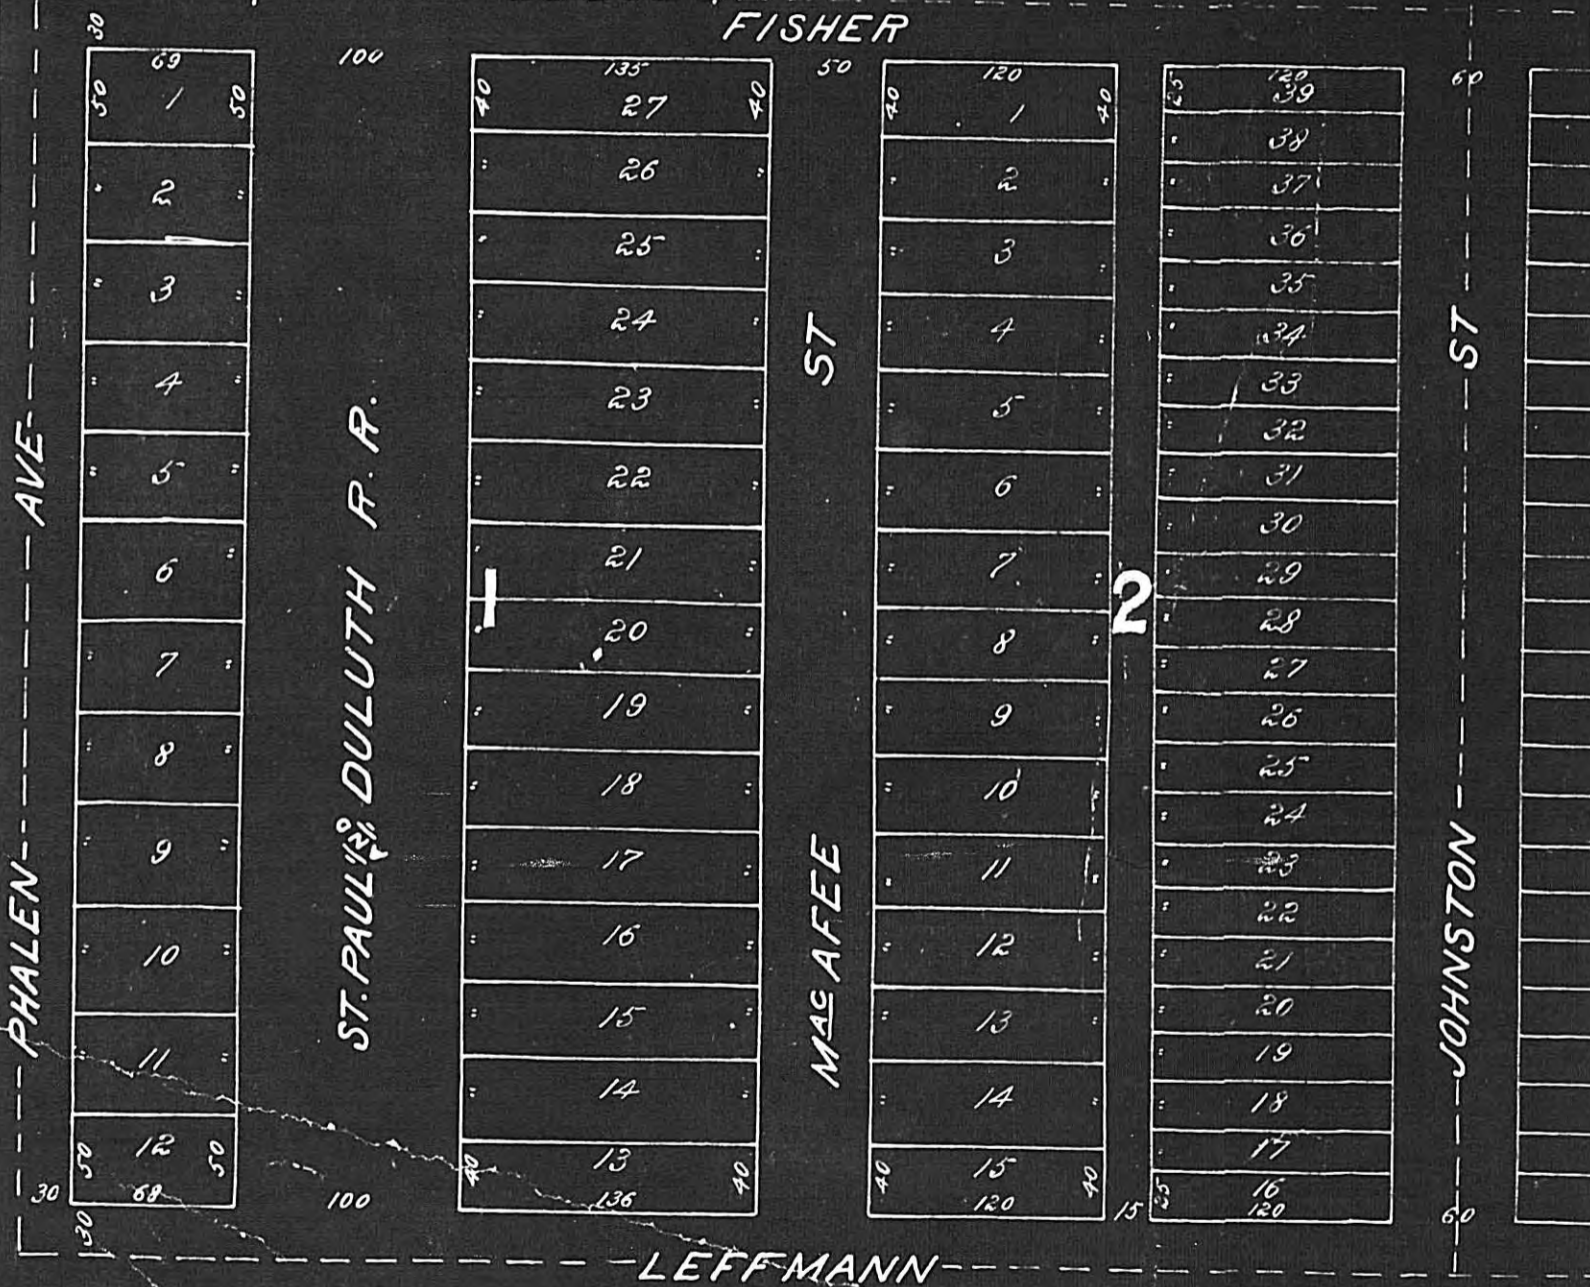 FISHER
30
69
50 1 50
2
3
4
5
6
7
8
9
10
11
50 12 50
68
30
30
PHALEN AVE
100
ST. PAUL & DULUTH R. R.
100
135
40 27 40
26
25
24
23
22
21
1
20
19
18
17
16
15
14
40 13 40
136
50
MAC AFEE ST
120
40 1 40
2
3
4
5
6
7
8
9
10
11
12
13
14
40 15 40
120
2
15
120
25 39
38
37
36
35
34
33
32
31
30
29
28
27
26
25
24
23
22
21
20
19
18
17
25 16
120
60
JOHNSTON ST
60
LEFFMANN